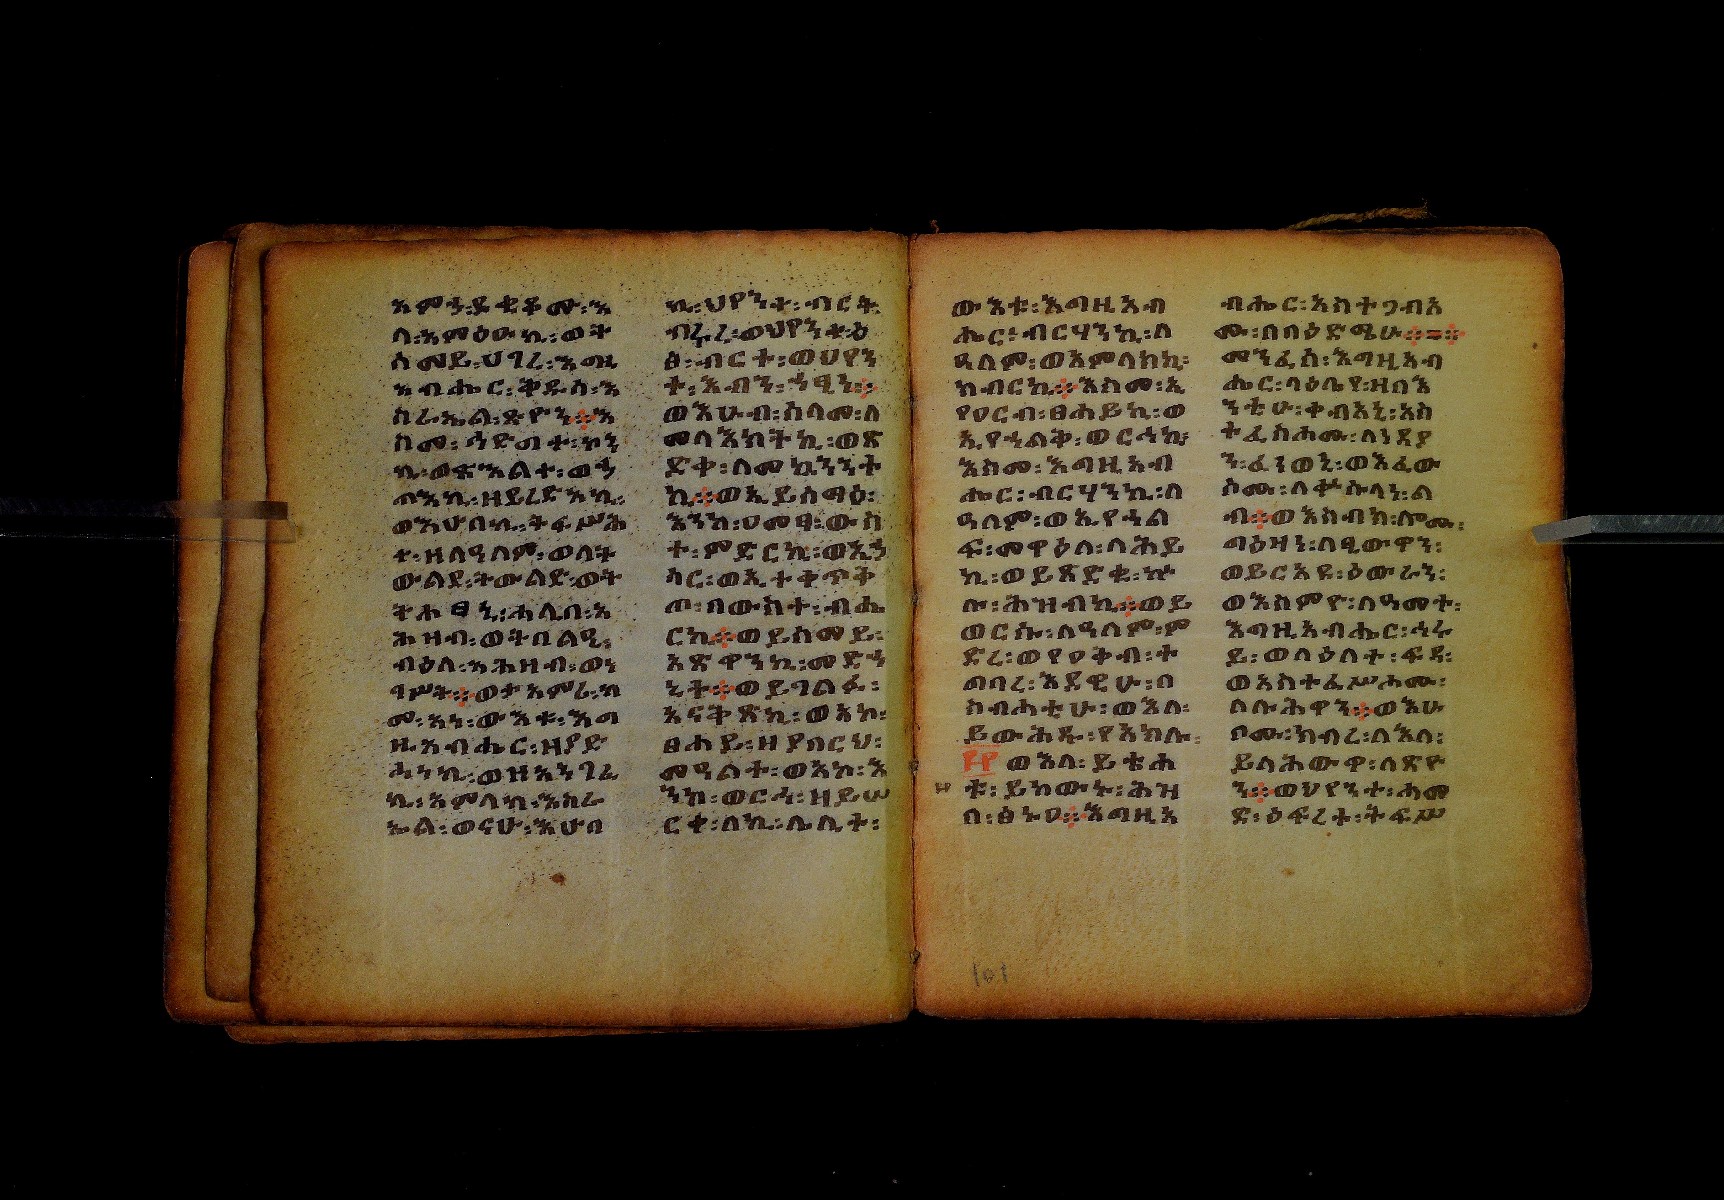 ለ፡እምዕውኪ፡ወት
ሰመይ፡ሀገረ፡እግዚ
አብሔር፡ቅዱስ፡እ
ስራኤል፡ጽዮን፨እ
ስመ፡ኀድግተ፡ኮን
ኪ፡ወጽልእተ፡ወኀ
ጣእኪ፡ዘይረድአኪ፡
ወእሁበኪ፡ትፍሥሕ
ተ፡ዘለዓለም፡ወለት
ውልደ፡ትውልድ፡ወት
ጥሐፀኒ፡ሐሊበ፡አ
ሕዛብ፡ወትበልዒ፡
ብዕለ፡አሕዛብ፡ወነ
ገሥት፨ወታአምሪ፡ከ
መ፡አነ፡ውእቱ፡እግ
ዚአብሔር፡ዘያድ
ሕነኪ፡ወዝአንገረ
ኪ፡አምላከ፡እስራ
ኤል፡ወናሁ፡እሁበ
ኪ፡ህየንተ፡ብርት
ብሩረ፡ወህየንተ፡ዕ
ፅ፡ብርተ፡ወህየን
ተ፡እብን፡ኀፂነ፨
ወእሁብ፡ሰላመ፡ለ
መላእክትኪ፡ወጽ
ድቀ፡ለመኳንንት
ኪ፨ወኢይሰማዕ፡
እንከ፡ዐመፃ፡ውስ
ተ፡ምድርኪ፡ወኢኀ
ሳር፡ወኢተቀጥቅ
ጦ፡በውስተ፡ብሔ
ርኪ፨ወይሰመይ፡
አጽዋንኪ፡መድኀ
ኒት፨ወይገልፉ፡
አናቅጽኪ፡ወአኮ፡
ፀሐይ፡ዘያበርህ፡
መዓልተ፡ወአኮ፡እ
ንከ፡ወርኅ፡ዘይሠ
ርቀ፡ለኪ፡ሌሊተ፡
ውእቱ፡እግዚአብ
ሔር፡ብርሃንኪ፡ለ
ዓለም፡ወአምላክኪ፡
ክብርኪ፨እስመ፡ኢ
የዐርብ፡ፀሐይኪ፡ወ
ኢየኀልቅ፡ወርኅኪ፡
እስመ፡እግዚአብ
ሔር፡ብርሃንኪ፡ለ
ዓለም፡ወኢየኀል
ፍ፡መዋዕለ፡ላሕይ
ኪ፡ወይጸድቁ፡ኵ
ሉ፡ሕዝብኪ፨ወይ
ወርሱ፡ለዓለም፡ም
ድረ፡ወየዐቅብ፡ተ
ግባረ፡እደዊሁ፡በ
ስብሐቲሁ፡ወእለ፡
ይውሕዱ፡የአክሉ፡
፲፻ወእለ፡ይቴሐ
ቱ፡ይከውኑ፡ሕዝ
በ፡ፅኑዐ፨እግዚአ
ብሔር፡አስተጋብአ
ሙ፡በበዕድሜሁ፨=፨
መንፈሰ፡እግዚአብ
ሔር፡ላዕሌየ፡ዘበእ
ንቲሁ፡ቀብአኒ፡አስ
ተፈስሖሙ፡ለነዳያ
ን፡ፈነወኒ፡ወእፈው
ሶሙ፡ለቍሱላነ፡ል
ብ፨ወእስብክ፡ሎሙ፡
ግዕዛነ፡ለፂውዋን፡
ወይርአዩ፡ዕውራን፡
ወእሰምዮ፡ለዓመተ፡
እግዚአብሔር፡ኅሩ
ይ፡ወለዕለተ፡ፍዳ፡
ወአስተፈሥሖሙ፡
ለሉሕዋን፨ወእሁ
ቦሙ፡ክብረ፡ለእለ፡
ይላሕውዋ፡ለጽዮ
ን፨ወህየንተ፡ሐመ
ድ፡ዕፍረተ፡ትፍሥ
101